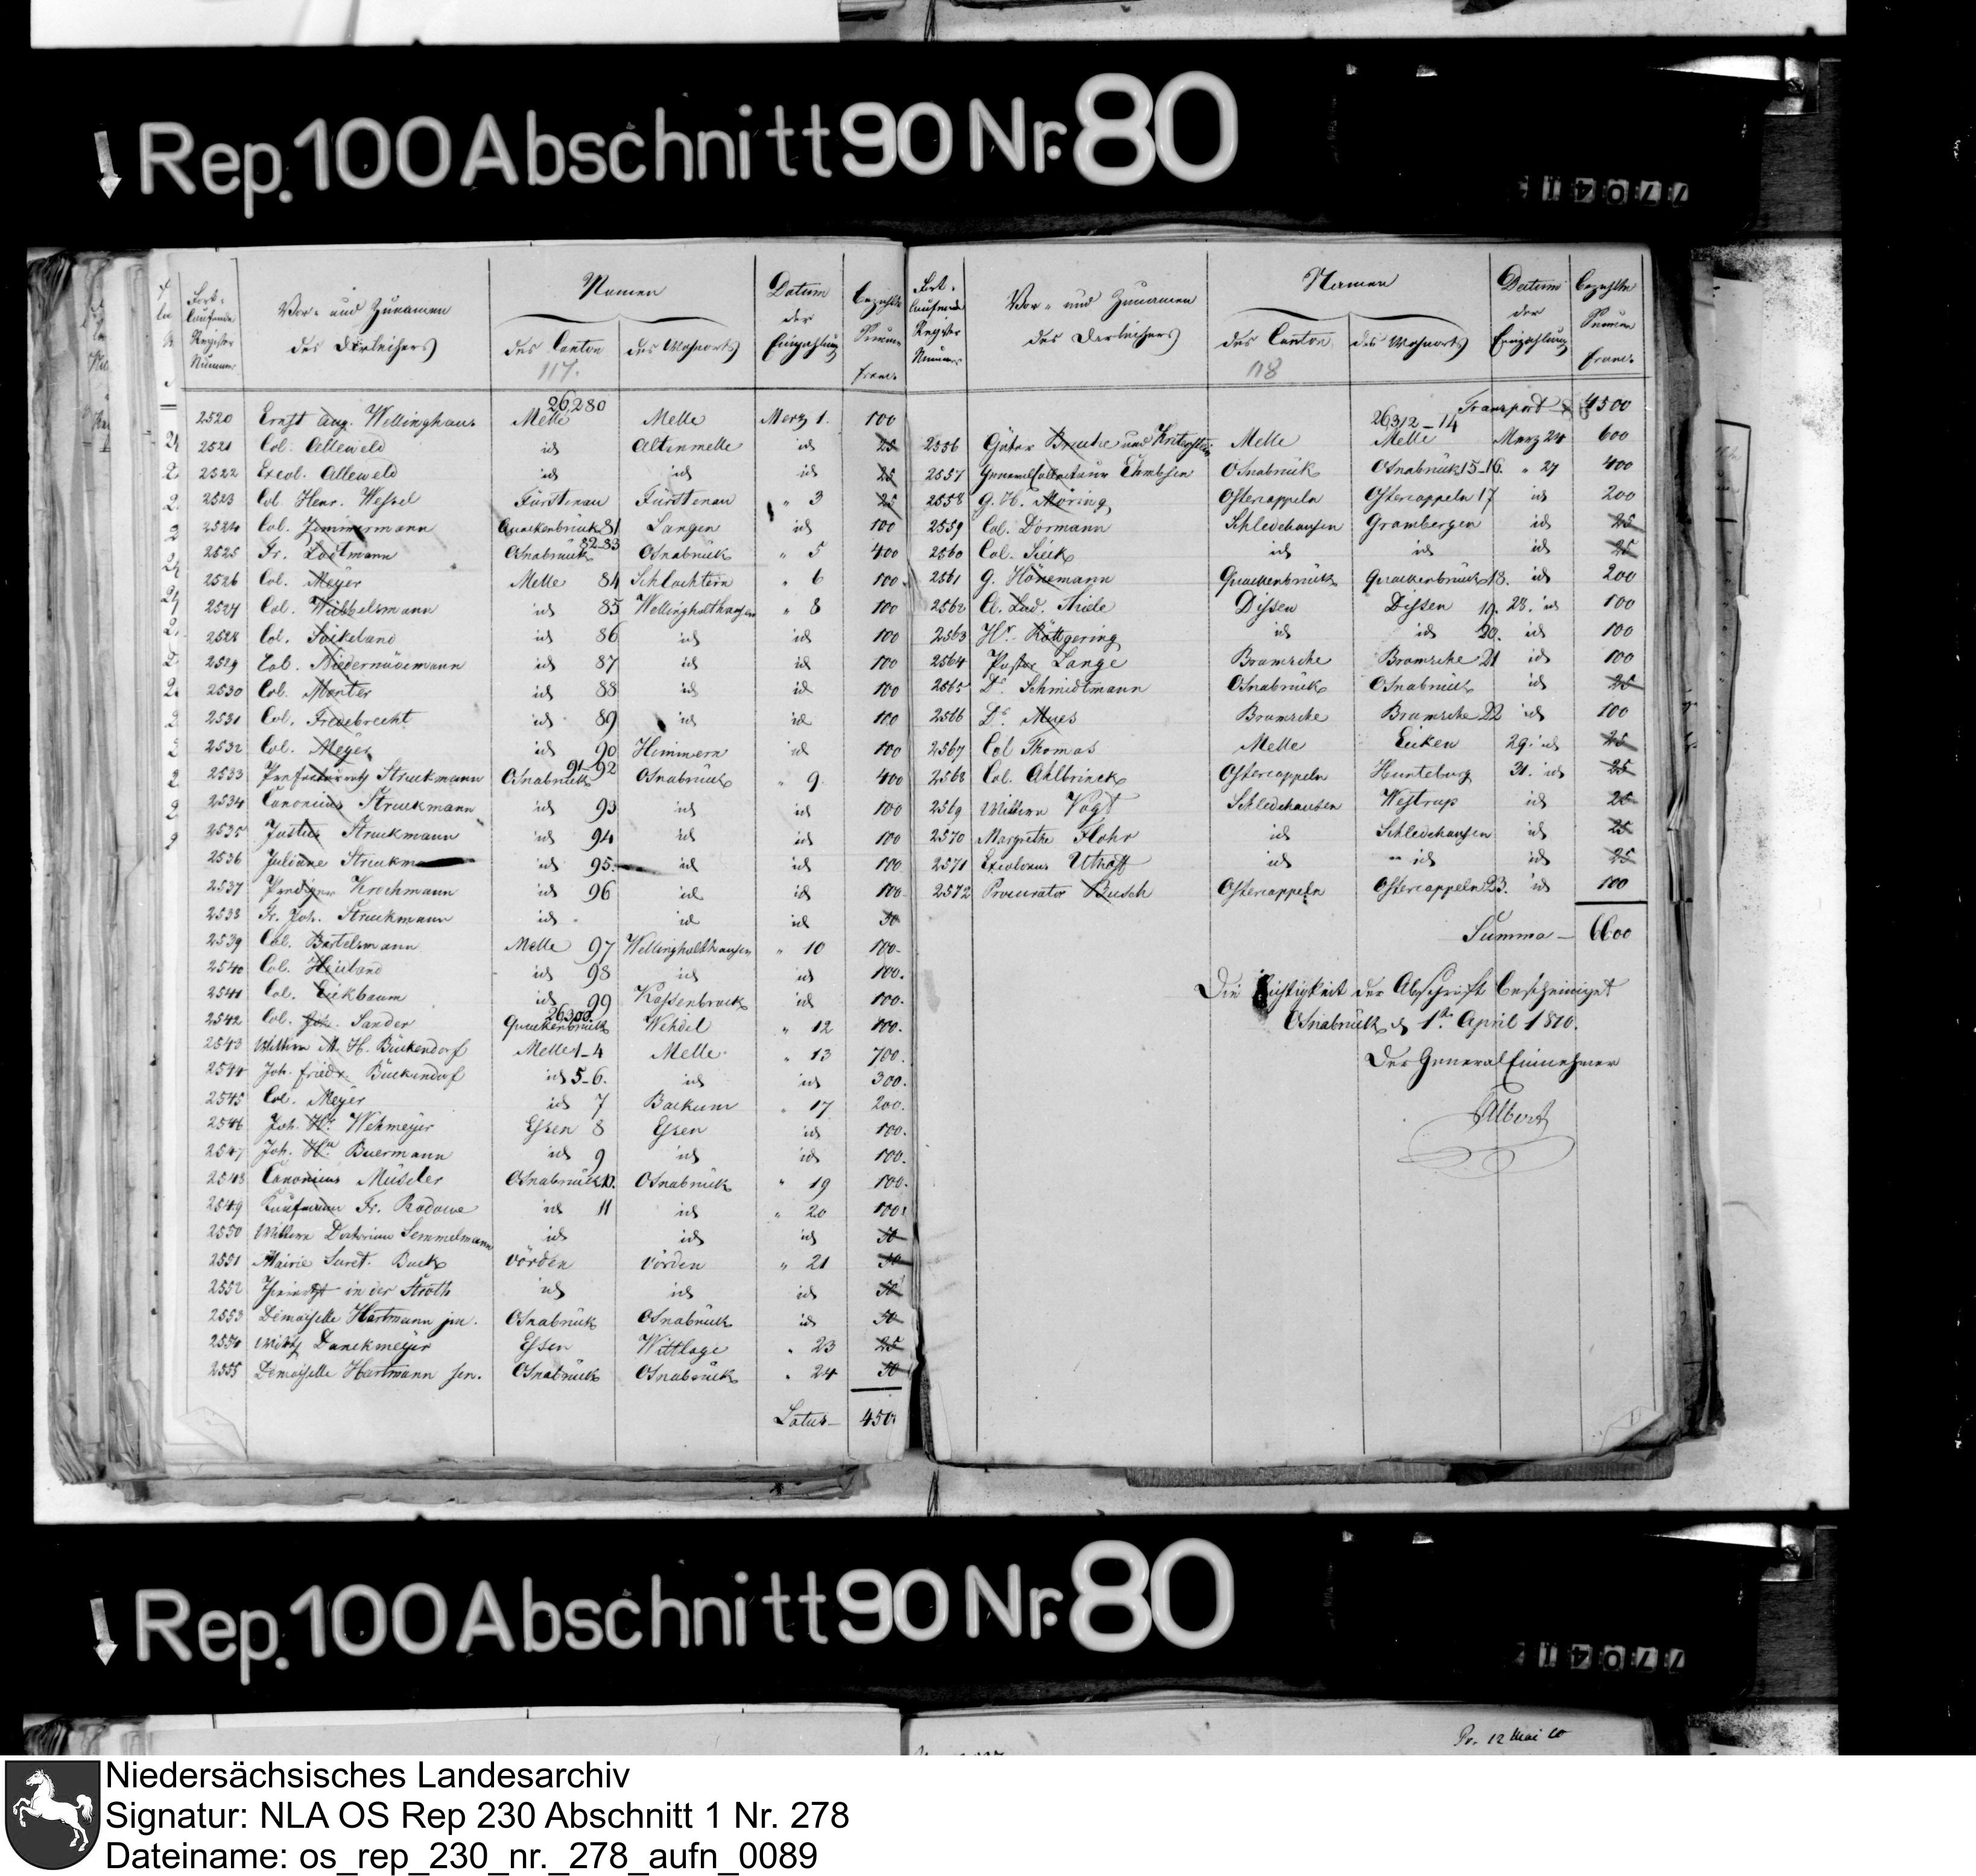 Rep. 100 Abschnitt 90 Nr. 80
Fort-laufende Register Nummer
Vor- und Zunamen des Darleihers
Namen
des Canton
des Wohnorts
Datum der Einzahlung
bezahlte Summe franc.
117.
26,280
2520 Ernst Aug. Wellinghaus Melle Melle Merz 1. 100
2521 Col. Alleweld id Altenmelle id 25
2522 Excol. Alleweld id id id 25
2523 Col. Henr. Wessel Fürstenau Fürstenau " 3 25
2524 Col. Zimmermann Quackenbrück 81 Langen id 100
2525 Fr. Lodtmann Osnabrück 82-83 Osnabrück " 5 400
2526 Col. Meyer Melle 84 Schlochtern " 6 100
2527 Col. Wibbelsmann id 85 Wellingholthausen " 8 100
2528 Col. id 86 id id 100
2529 Col. id 87 id id 100
2530 Col. Monter id 88 id id 100
2531 Col. Fredebrecht id 89 id id 100
2532 Col. Meyer id 90 Himmern id 100
2533 Struckmann Osnabrück 91-92 Osnabrück " 9. 400
2534 Canonicus Struckmann id 93 id id 100
2535 Justus Struckmann id 94 id id 100
2536 Juliane id 95. id id 100
2537 Prediger Krochmann id 96 id id 100
2538 Fr. Joh. Struckmann id id id 30
2539 Col. Bartelsmann Melle 97 Wellingholthausen " 10 100.
2540 Col. id 98 id id 100.
2541 Col. Eickbaum id 99 Kossenbrock id 100.
2542 Col. Joh. Sander Quackenbrück 26300. Wehdel " 12 100.
2543 Wittwe M. H. Bückendorf Melle 1-4 Melle " 13 700.
2544 Joh. Friedr. Bückendorf id 5-6. id id 300.
2545 Col. Meyer id 7 Backum " 17 200.
2546 Joh. Hr. Wehmeyer Essen 8 Essen id 100.
2547 Joh. Hn. Buermann id 9 id id 100.
2548 Canonicus Müseler Osnabrück 10. Osnabrück " 19 100.
2549 Kaufmann Fr. Rodowe id 11 id " 20 100.
2550 Wittwe Doctorinn Semmelmann id id id 50
2551 Mairie Secret. Buck Vörden Vörden " 21 50
2552 in der Stroth id id id 50
2553 Demoiselle Hartmann jun. Osnabrück Osnabrück id 50
2554 Danckmeyer Essen Wittlage " 23 25
2555 Demoiselle Hartmann sen. Osnabrück Osnabrück " 24 50
Latus
Fort-laufende Register Nummer
Vor- und Zunamen des Darleihers
Namen
des Canton
des Wohnorts
Datum der Einzahlung
bezahlte Summe franc.
118
Transport 4500
26312-14
2556 Melle Melle Merz 24 600
2557 Osnabrück Osnabrück 15-16. " 27 400
2558 G. H. Möring Ostercappeln Ostercappeln 17 id 200
2559 Col. Dormann Schledehausen Grambergen id 25
2560 Col. Sieck id id id 25
2561 G. Hönemann Quackenbrück Quackenbrück 18. id 200
2562 Lud. Thiele Dissen Dissen 19. 28. id 100
2563 Hr. Röttgering id id 20. id 100
2564 Pastor Lange Bramsche Bramsche 21 id 100
2565 Dr. Schmidtmann Osnabrück Osnabrück id 25
2566 Dr. Mues Bramsche Bramsche 22 id 100
2567 Col Thomas Melle Eicken 29. id 25
2568 Col. Ahlbrinck Ostercappeln Hunteburg 31. id 25
2569 Wittwe Vogt Schledehausen Westrup id 25
2570 Margrethe Flohr id Schledehausen id 25
2571 Excolonus Uthoff id id id 25
2572 Procurator Busch Ostercappeln Ostercappeln 23. id 100
Summa - 6600
Die Richtigkeit der Abschrift bescheiniget
Osnabrück d. 1ten April 1810.
Der General Einnehmer
Albers
Rep. 100 Abschnitt 90 Nr. 80
Pr. 12 Mai 10
Niedersächsisches Landesarchiv
Signatur: NLA OS Rep 230 Abschnitt 1 Nr. 278
Dateiname: os_rep_230_nr._278_aufn_0089